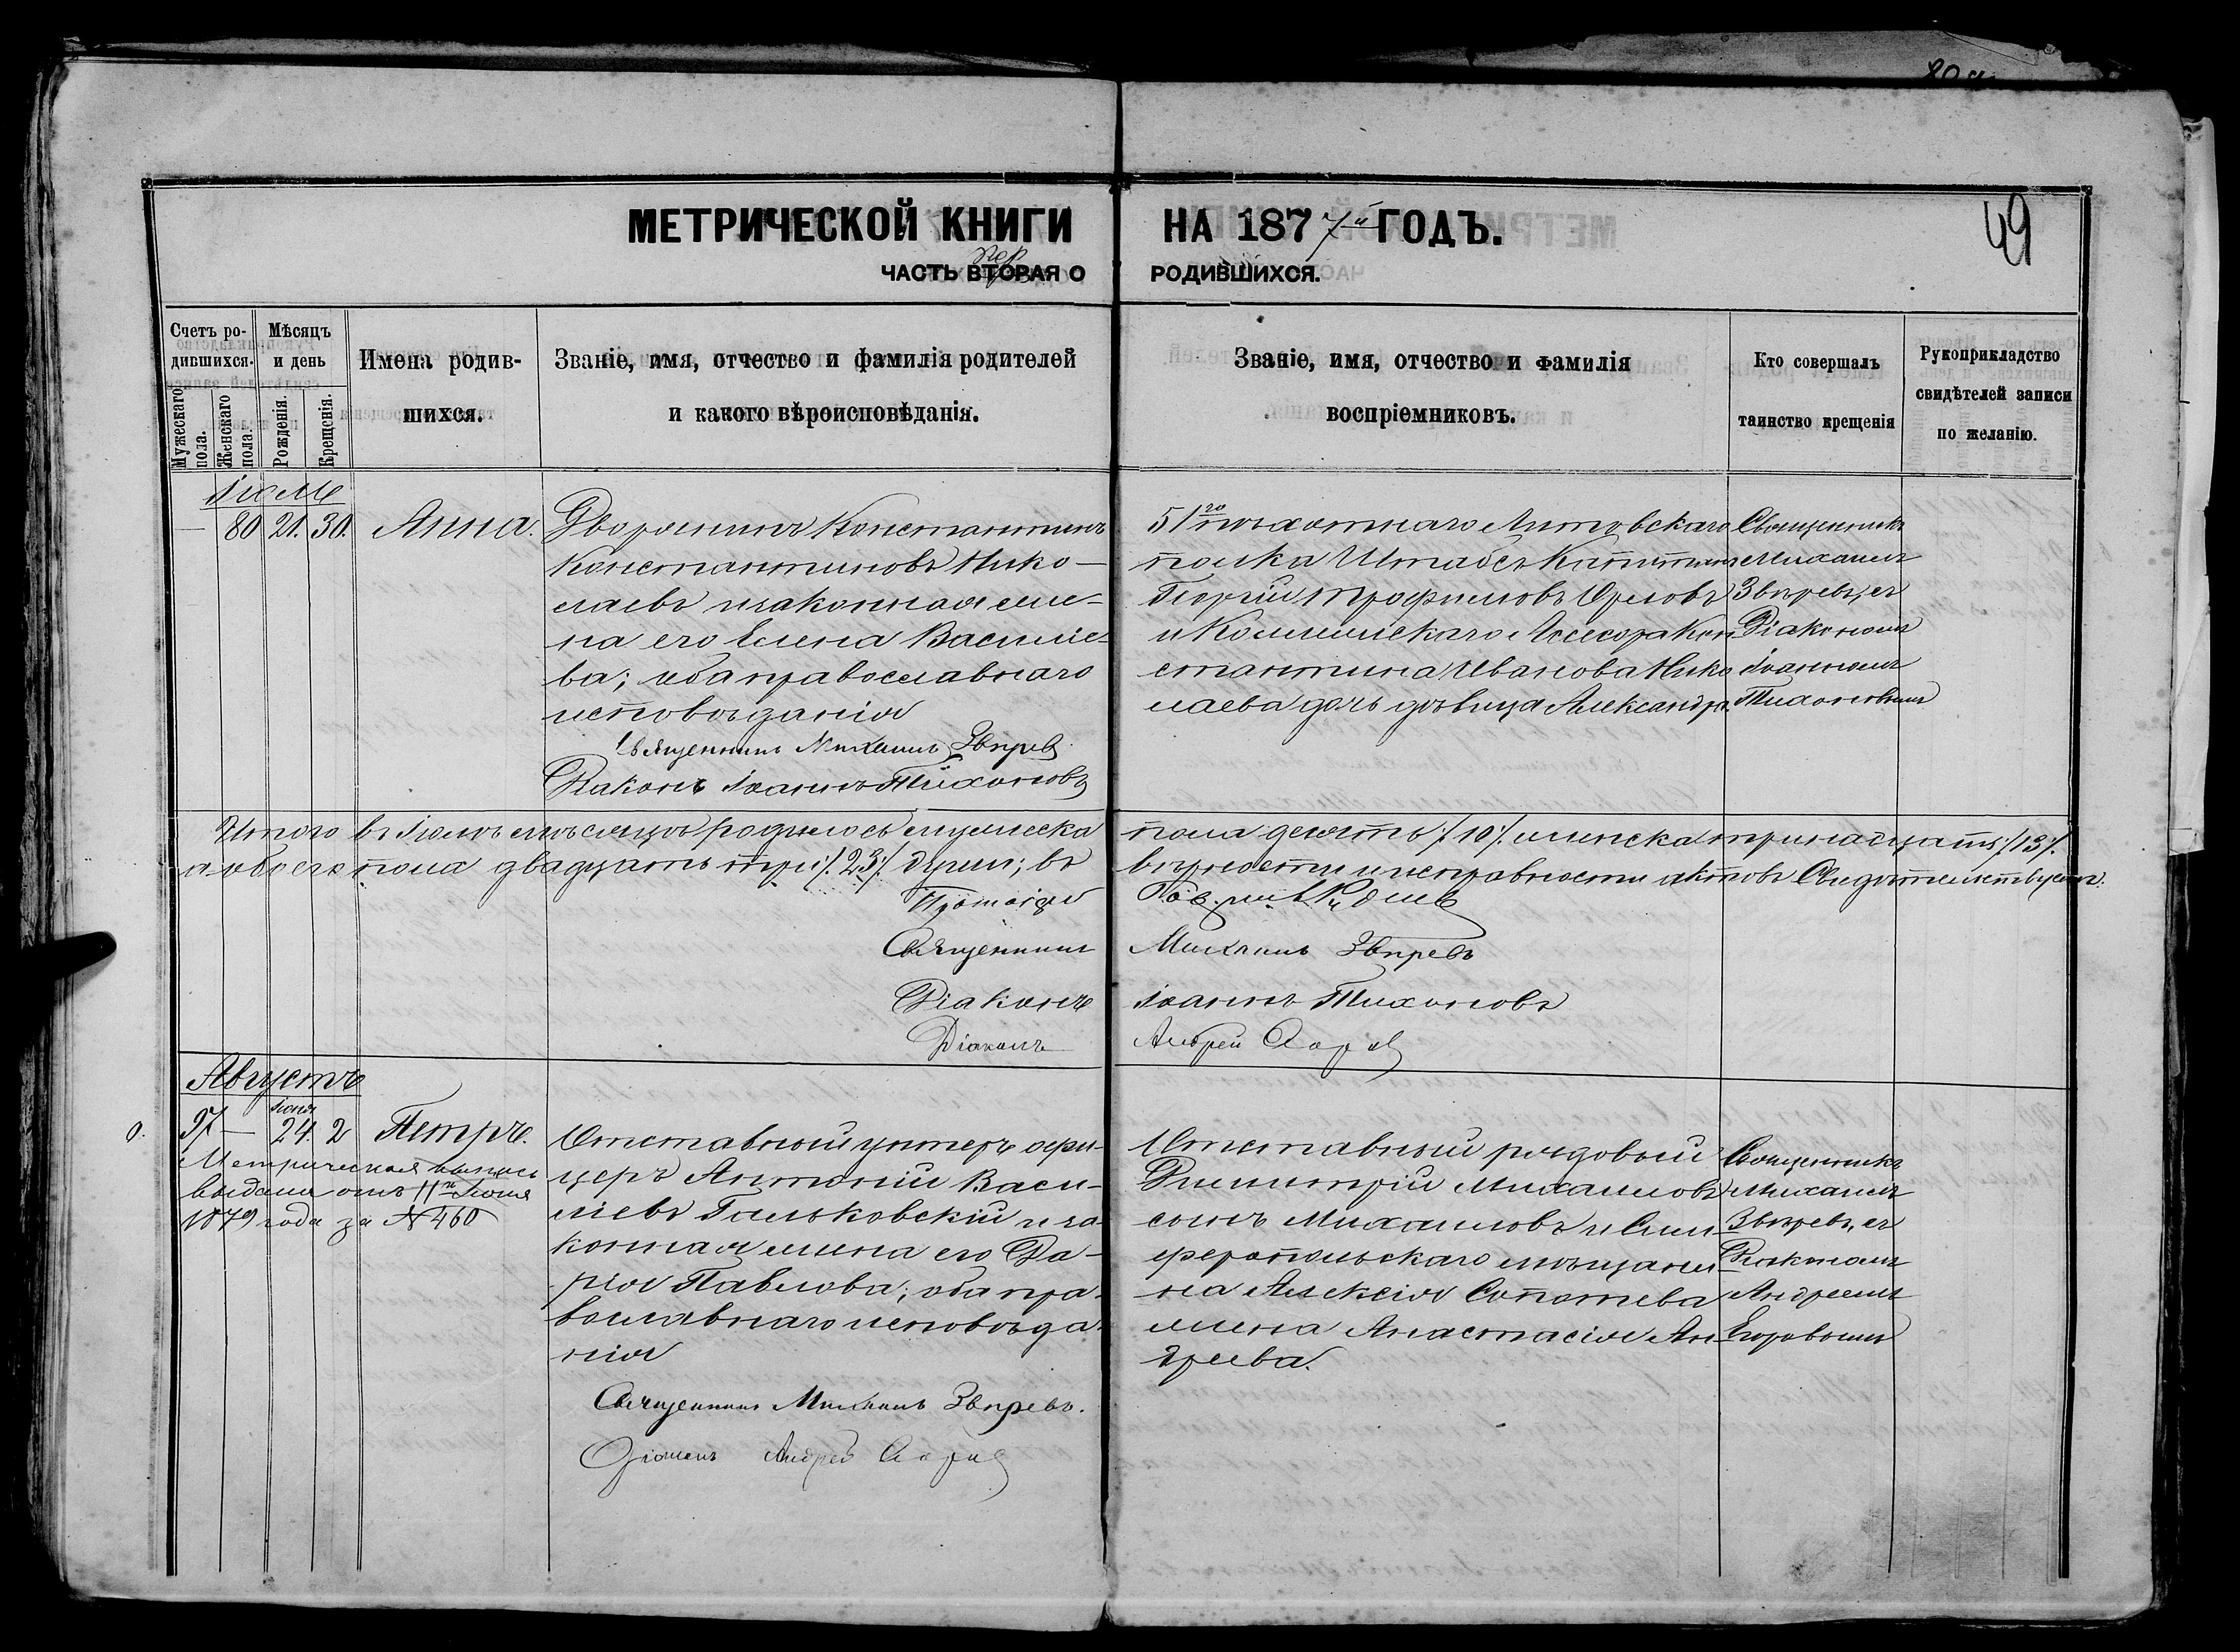 МЕТРИЧЕСКОЙ КНИГИ НА 1877й ГОДЪ.
49
ЧАСТЬ ВТОРАЯ О РОДИВШИХСЯ.
пер
Счетъ родившихся.
Мужескаго пола.
Женскаго пола.
Мѣсяцъ и день
Рожденія.
Крещенія.
Имена родившихся.
Званіе, имя, отчество и фамилія родителей
и какого вѣроисповѣданія.
Званіе, имя, отчество и фамилія
воспріемниковъ.
Кто совершалъ
таинство крещенія
Рукоприкладство
свидѣтелей записи
по желанію.
Іюль
— 80 21. 30. Анна.
Дворянинъ Константинъ
Константиновъ Нико-
лаевъ и законная же-
на его Елена Василіе-
ва; оба православнаго
исповѣданія
Священникъ Михаилъ Звѣревъ
Діаконъ Іоаннъ Тихоновъ
51го пѣхотнаго Литовскаго
полка Штабсъ Капитанъ
Георгій Трофимовъ Орловъ
и Коллежскаго Ассесора Кон
стантина Иванова Нико
лаева дочь дѣвица Александра.
Священникъ
Михаилъ
Звѣревъ, съ
Діакономъ
Іоанномъ
Тихоновымъ
Итого въ Іюлѣ мѣсяцѣ родилось мужеска пола десять /10/. женска тринадцать /13/.
а обоего пола двадцать три /23/ душъ; въ вѣрности и исправности актовъ Свидѣтельствуемъ.
Протоіерей
Священникъ Михаилъ Звѣревъ
Діаконъ Іоаннъ Тихоновъ
Діаконъ Андрей
Августъ
97 — Іюня 24. 2 Петръ.
Метрическая выпись
выдана отъ 11го Іюня
1879 года за № 460
Отставный унтеръ офи-
церъ Антоній Васи-
ліевъ Гальковскій и за-
конная жена его Да-
рія Павлова; оба пра-
вославнаго исповѣда-
нія
Священникъ Михаилъ Звѣревъ.
Діаконъ Андрей
Отставный рядовый
Димитрій Михаиловъ
сынъ Михаиловъ и Сим-
феропольскаго мѣщани-
на Алексія
жена Анастасія Ан-
дреева.
Священникъ
Михаилъ
Звѣревъ, съ
Діакономъ
Андреемъ
Егоровымъ